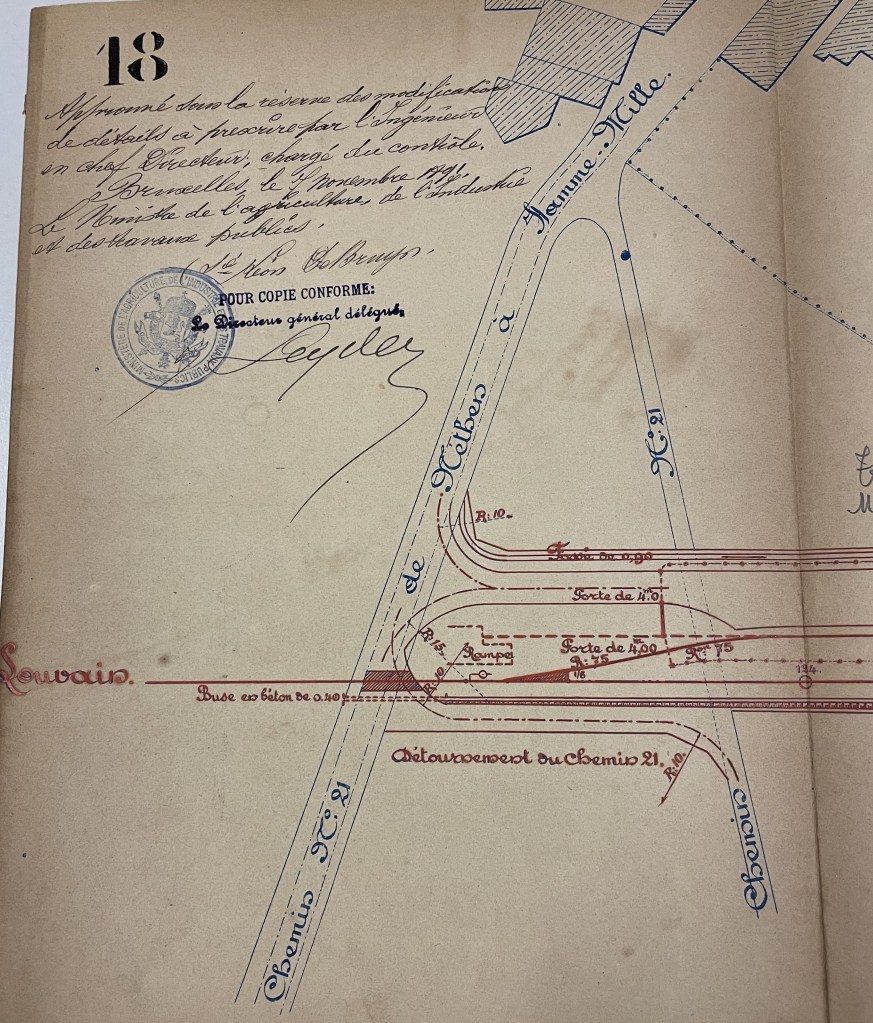 18
Approuvé sous la réserve des modifications
de détails à prescrire par l'Ingénieur
en chef Directeur, chargé du contrôle.
Bruxelles, le 7 novembre 1891.
Le Ministre de l'agriculture, de l'Industrie
et des travaux publics.
Sé Léon De Bruyn.
POUR COPIE CONFORME:
Le Directeur général délégué,
MINISTÈRE DE L'AGRICULTURE, DE L'INDUSTRIE ET DES TRAVAUX PUBLICS
Chemin N° 21 de Néthen à Hamme-Mille.
N° 21
R: 10
Fossé de 0,90
Porte de 4m0
Porte de 4m00
R: 15
Rampe
R: 75
Ron 75
R: 10
1/6
124
Louvain.
Buse en béton de 0.40
Détournement du Chemin 21.
R: 10.
Chemin